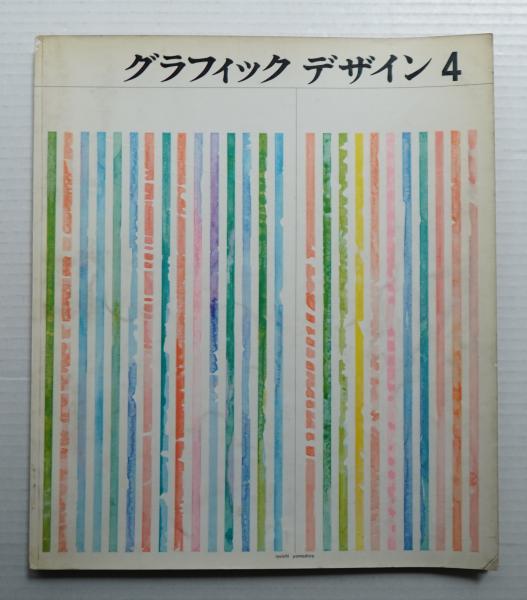 グラフィック デザイン 4